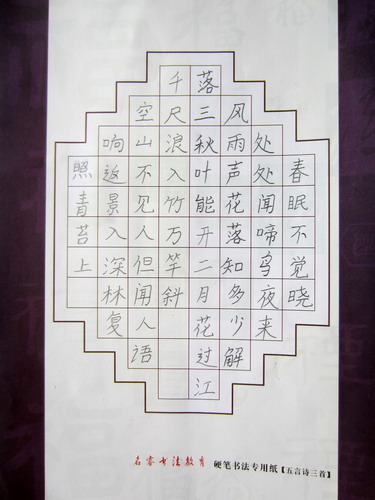 春眠不觉晓
处处闻啼鸟夜来
风雨声花落知多少解
落三秋叶能开二月花过江
千尺浪入竹万竿斜
空山不见人但闻人语
响返景入深林复
照青苔上
书法教育 硬笔书法专用纸【五言诗三首】